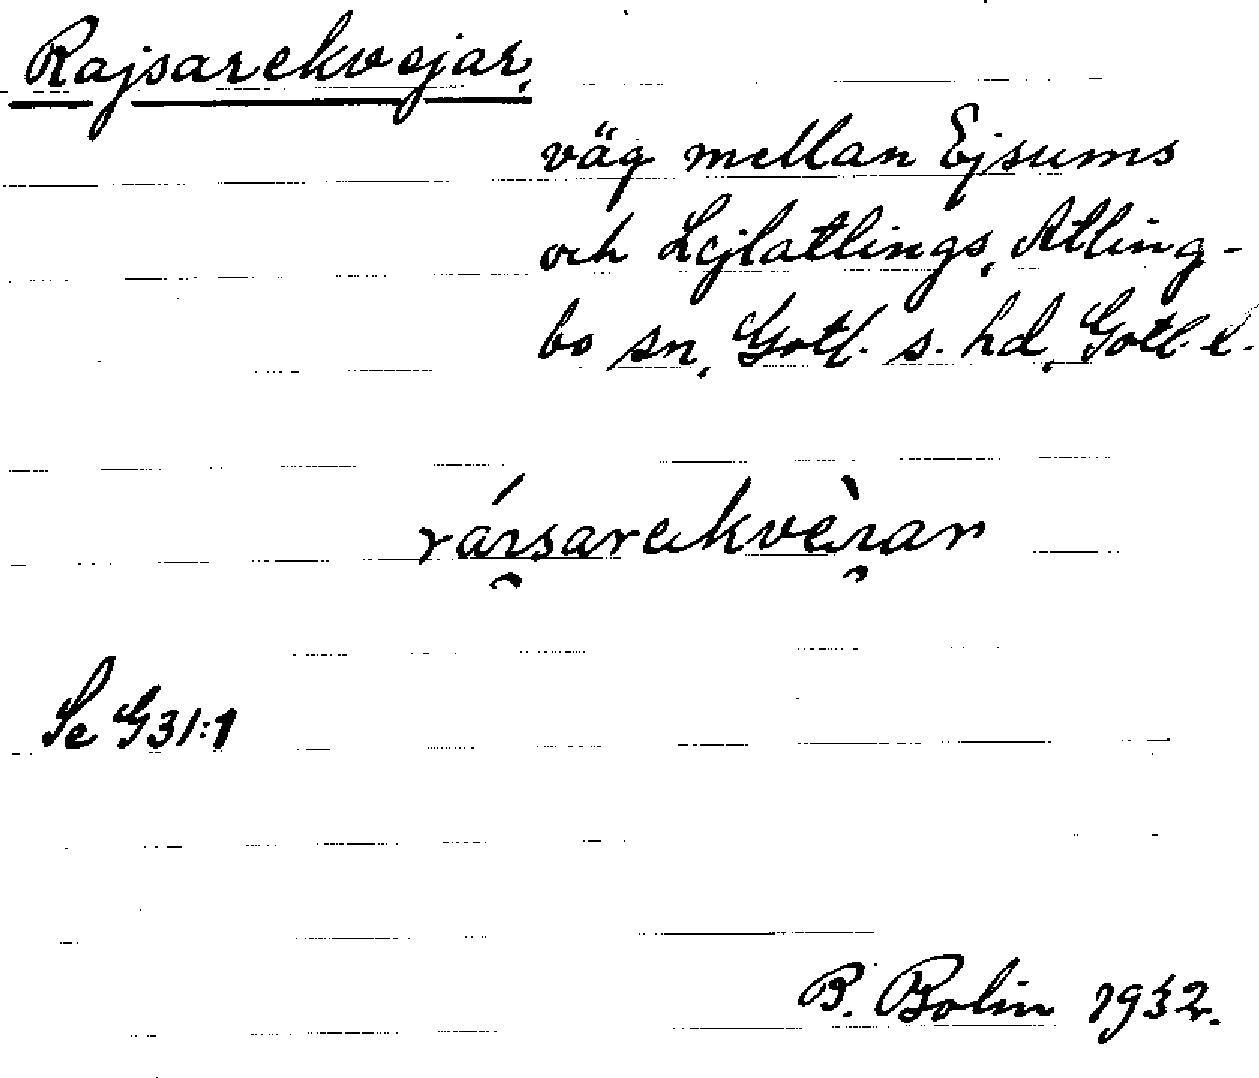 Rajsarekvejar,
väg mellan Ejsums
och Lejlatlings, Atling-
bo sn, Gotl. s. hd, Gotl. l.
Se G31:1
B. Bolin 1932.